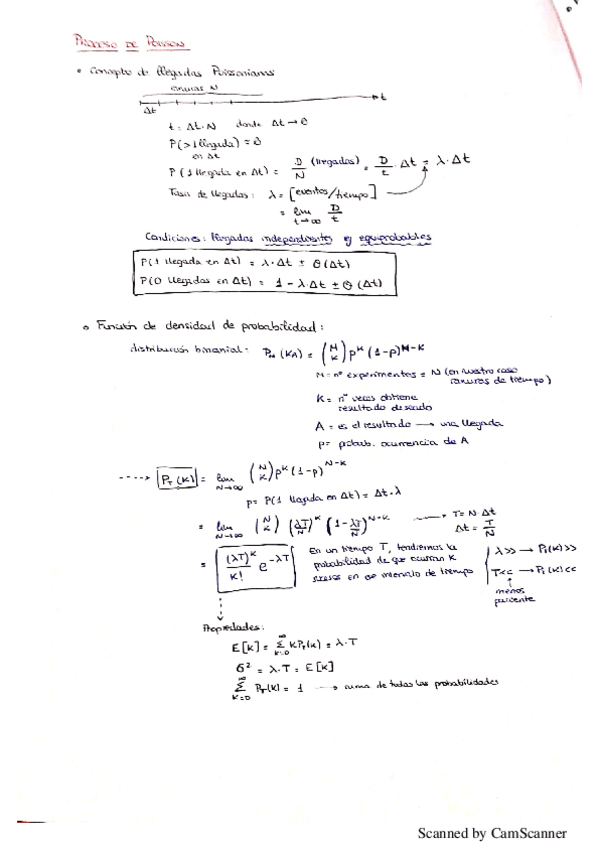 PROCESO DE POISSON
• Concepto de llegadas Poissonianas
ranuras N
Δt
t
t = Δt·N donde Δt → 0
P(>1 llegada) = 0
en Δt
P(1 llegada en Δt) = D/N (llegadas) = D/t · Δt = λ·Δt
Tasa de llegadas: λ = [eventos/tiempo]
= lim t→∞ D/t
Condiciones: llegadas independientes y equiprobables
P(1 llegada en Δt) = λ·Δt ± θ(Δt)
P(0 llegadas en Δt) = 1 - λ·Δt ± θ(Δt)
• Función de densidad de probabilidad:
distribución binomial: (M K) p^K (1-p)^M-K
M = nº experimentos = N (en nuestro caso
ranuras de tiempo)
K = nº veces obtiene
resultado deseado
A = es el resultado → una llegada
p = probab. ocurrencia de A
----> P_T(K) = lim N→∞ (N K) p^K (1-p)^N-K
p = P(1 llegada en Δt) = Δt·λ
= lim N→∞ (N K) (λT/N)^K (1 - λT/N)^N-K → T = N·Δt
Δt = T/N
= (λT)^K / K! e^-λT
En un tiempo T, tendremos la
probabilidad de que ocurran K
en ese intervalo de tiempo
λ>> → P_T(K)>>
T<< → P_T(K)<<
menos
Propiedades:
E[K] = ∞ Σ K=0 K P_T(K) = λ·T
σ² = λ·T = E[K]
∞ Σ K=0 P_T(K) = 1 → suma de todas las probabilidades
Scanned by CamScanner